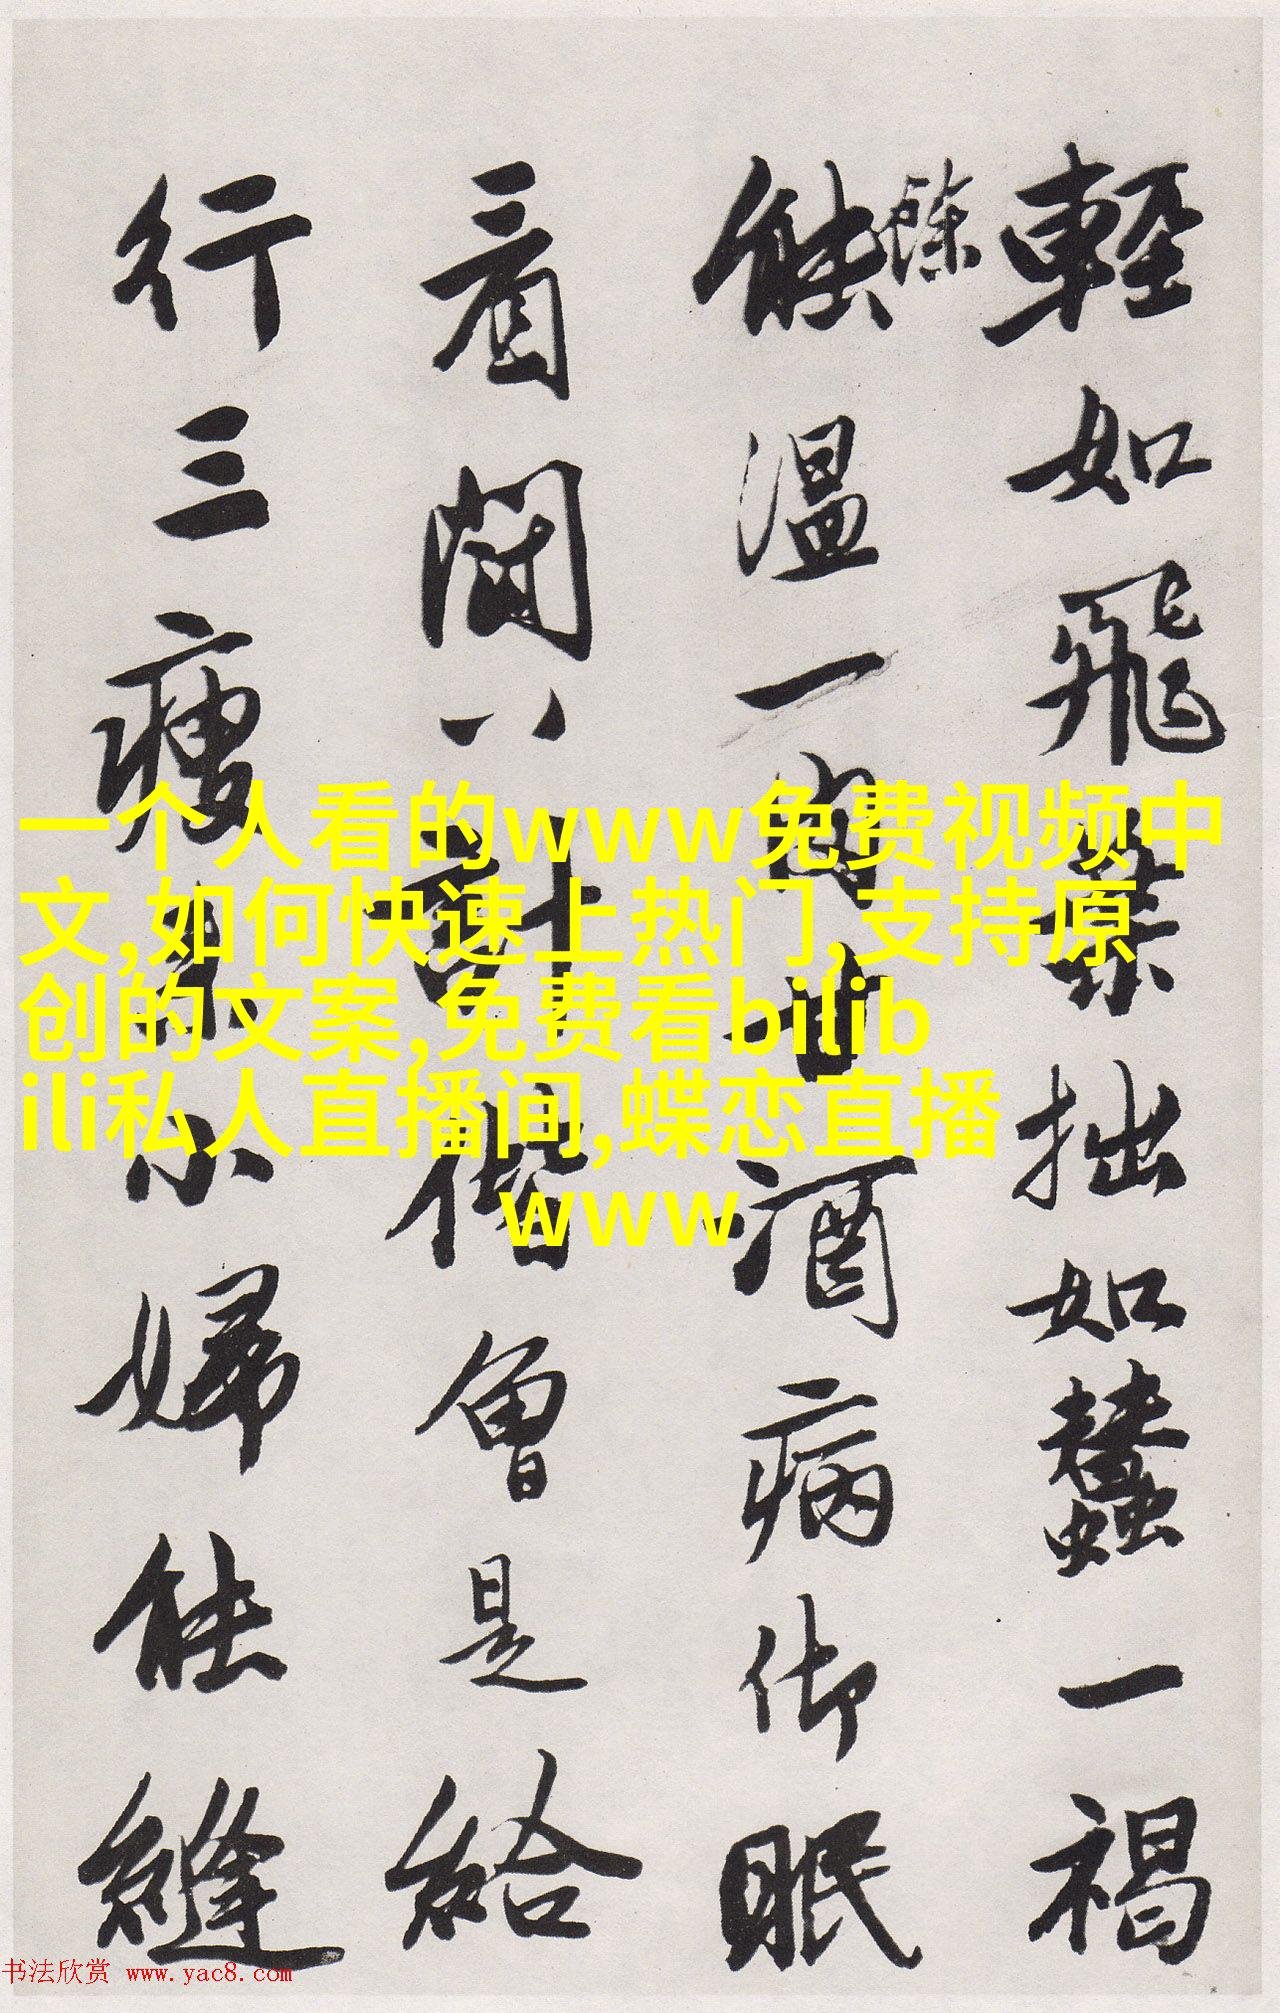 輕如飛葉拙如蠶一褐
能溫一肉甘酒病仰眠
看鬭八計偕曾是給
行三瘦小婦能縫
一个人看的www免费视频中
文,如何快速上热门,支持原
创的文案,免费看bilib
ili私人直播间,蝶恋直播
www
书法欣赏 www.yac8.com